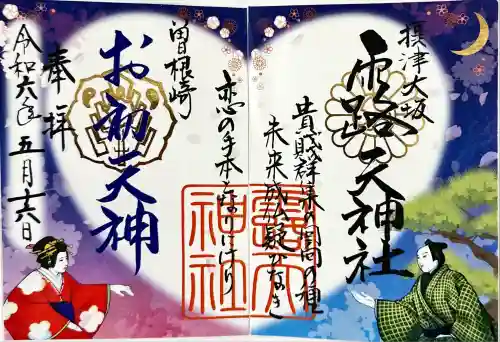 摂津大坂
露天神社
貴賎群集の回向の種
未来成仏疑ひなき
恋の手本となりにけり
曽根崎
お初天神
奉拝
令和六年五月十六日
露天神社